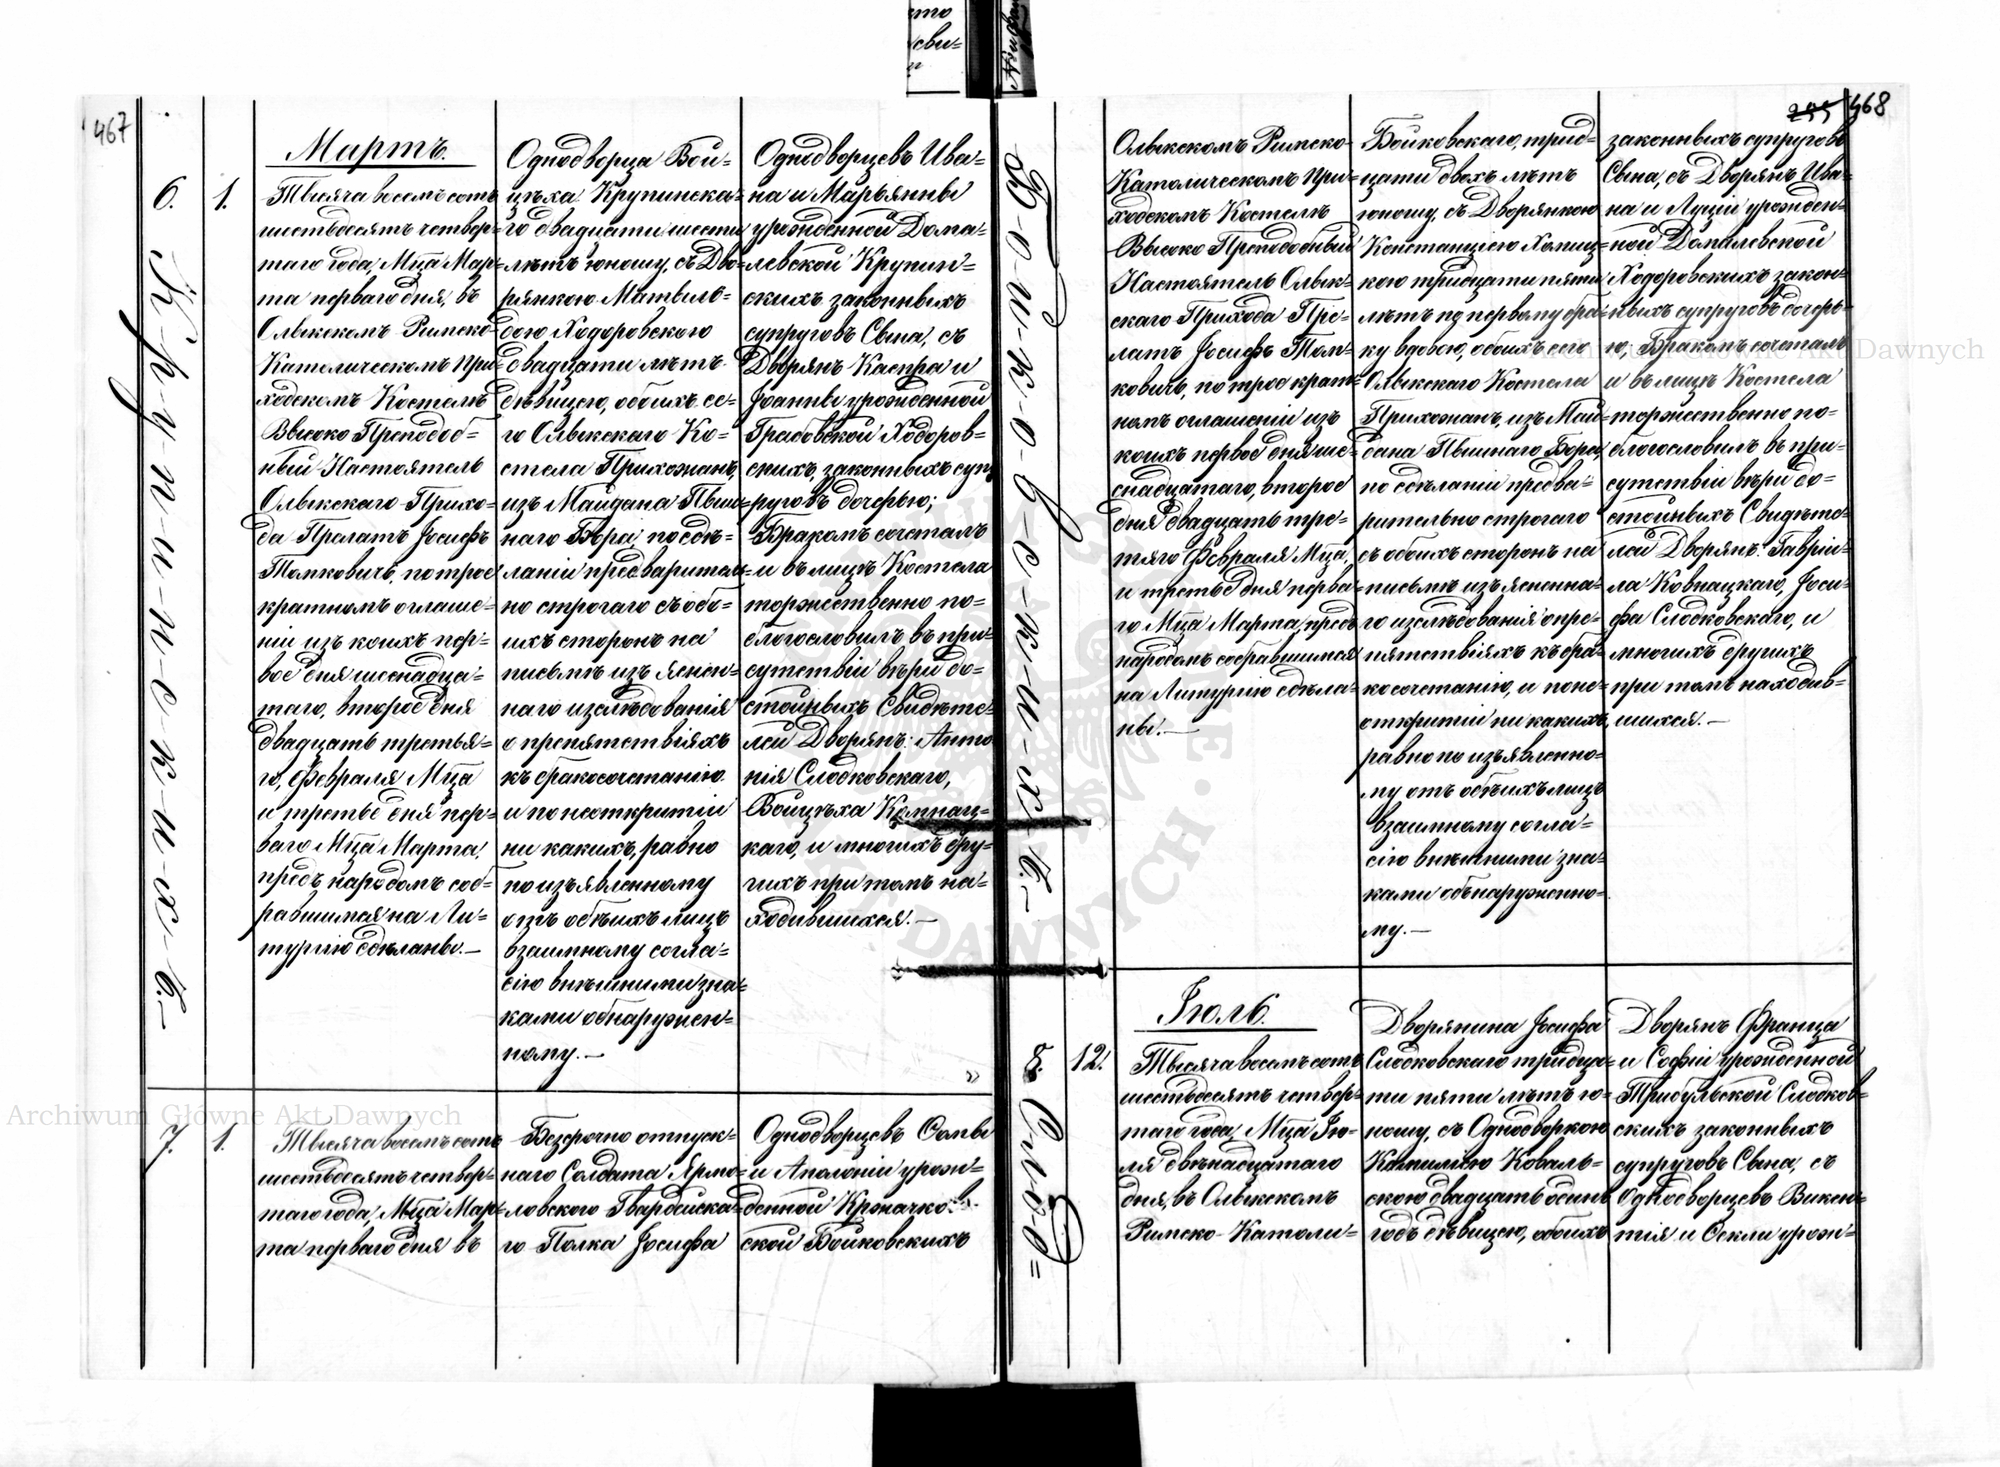 467
Мартъ.
6.
1.
Крупинскихъ 6.
Тысяча восемь сотъ
шестьдесятъ четвер=
таго года, Мца Мар=
та перваго дня, въ
Олыкскомъ Римско-
Католическомъ При=
ходскомъ Костелѣ
Высоко Преподоб=
ный Настоятель
Олыкскаго Прихо=
да Прелатъ Іосифъ
Томковичъ, по трое
кратномъ оглаше=
ніи изъ коихъ пер=
вое дня шеснадца=
таго, второе дня
двадцать третья=
го, Февраля Мца
и третье дня пер=
ваго Мца Марта,
предъ народомъ соб=
равшимся на Ли=
тургію сдѣланы.—
Однодворца Вой=
цѣха Крупинска=
го двадцати шести
лѣтъ юношу, съ Дво=
рянкою Матиль=
дою Ходоровскою
двадцати лѣтъ
дѣвицею, обоихъ се=
го Олыкскаго Ко=
стела Прихожанъ,
изъ Майдана Пыш=
наго Бора, по сдѣ=
ланіи предваритель=
но строгаго съ обо=
ихъ сторонъ на
письмѣ изъ яснен=
наго изслѣдованія
о препятствіяхъ
къ бракосочетанію
и по неоткрытіи
ни какихъ, равно
по изъявленному
отъ обѣихъ лицъ
взаимному согла=
сію внѣшними зна=
ками обнаружен=
ному.—
Однодворцевъ Ива=
на и Марьянны
урожденной Дома=
левской Крупин=
скихъ законныхъ
супруговъ Сына, съ
Дворянъ Каспра и
Іоанны урожденной
Грабовской Ходоров=
скихъ, законныхъ суп=
руговъ дочерью;
Бракомъ сочеталъ
и въ лицѣ Костела
торжественно по=
благословилъ въ при=
сутствіи вѣри до=
стойныхъ Свидѣте=
лей Дворянъ: Анто
нія Слодковскаго,
Войцѣха Компац=
каго, и многихъ дру=
гихъ при томъ на=
ходившихся.—
7.
1.
Тысяча восемь сотъ
шестьдесятъ четвер=
таго года, Мца Мар=
та перваго дня въ
Безсрочно отпуск=
наго Солдата Ярмо=
ловского Гвардейска=
го Полка Іосифа
Однодворцевъ Сомы
и Аполоніи урож=
денной Кржачков=
ской Бойковскихъ
468
Бойковскихъ 2.—
Олыкскомъ Римско-
Католическомъ При=
ходскомъ Костелѣ
Высоко Преподобный
Настоятель Олык=
скаго Прихода Пре=
латъ Іосифъ Том=
ковичъ, по трое крат=
номъ оглашеніи изъ
коихъ первое дня ше=
снадцатаго, второе
дня двадцать тре=
тяго Февраля Мца,
и третье дня перва=
го Мца Марта, предъ
народомъ собравшимся
на Литургію сдѣла=
ны.—
Бойковскаго, трид=
цати двохъ лѣтъ
юношу, съ Дворянкою
Констанціею Холиц=
кою тридцати пяти
лѣтъ по первому бра=
ку вдовою, обоихъ сего
Олыкскаго Костела
Прихожан, изъ Май=
дана Пышнаго Бора,
по сдѣланіи предва=
рительно строгаго
съ обоихъ сторонъ на
письмѣ изъ яснена=
го изслѣдованія о пре=
пятствіяхъ къ бра=
косочетанію, и поне=
открытіи ни какихъ,
равно по изъявленно=
му отъ обѣихъ лицъ
взаимному согла=
сію внѣшними зна=
ками обнаруженно=
му.—
законныхъ супруговъ
Сына, съ Дворянъ Ива=
на и Луціи урожден=
ной Домалевской
Ходоровскихъ закон=
ныхъ супруговъ дочерь=
ю, Бракомъ сочеталъ
и въ лицѣ Костела
торжественно по=
благословилъ въ при=
сутствіи вѣри до=
стойныхъ Свидѣте=
лей Дворянъ: Гавріи=
ла Ковнацкаго, Іоси=
фа Слодковскаго, и
многихъ другихъ
при томъ находив=
шихся.—
Іюль.
8.
12.
Тысяча восемь сотъ
шестьдесятъ четвер=
таго года, Мца Ію=
ля двѣнадцатаго
дня, въ Олыкскомъ
Римско-Католи=
Дворянина Іосифа
Слодковскаго тридца=
ти пяти лѣтъ ю=
ношу, съ Однодворкою
Камиліею Коваль=
скою двадцать одинъ
годъ дѣвицею, обоихъ
Дворянъ Франца
и Софіи урожденной
Трибульской Слодков=
скихъ законныхъ
супруговъ Сына, съ
Однодворцевъ Викен=
тія и Феклы урож=
Archiwum Główne Akt Dawnych